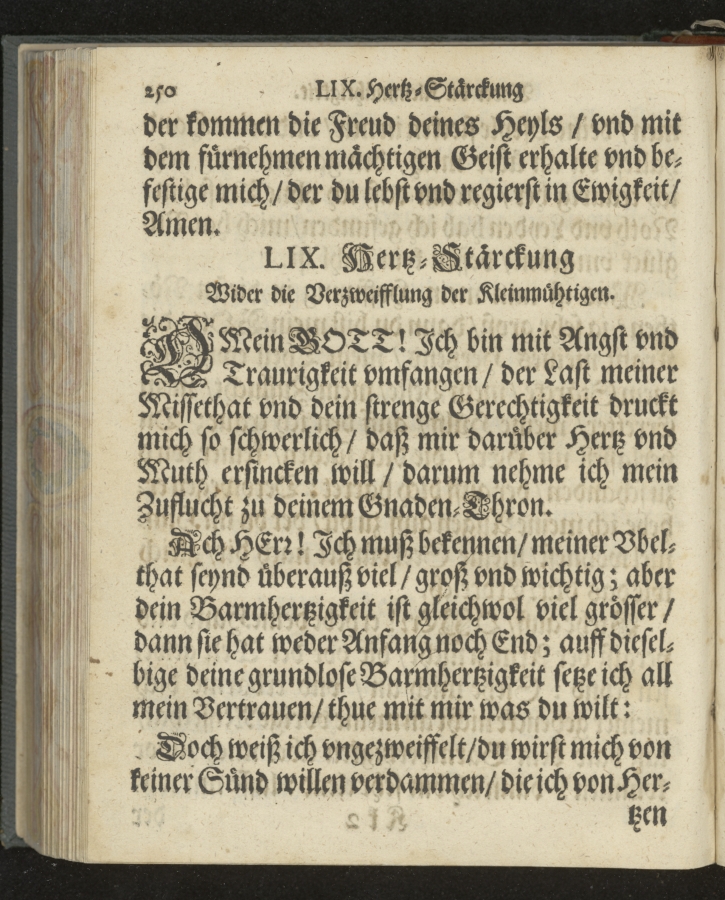 250 LIX. Hertz-Stärckung
der kommen die Freud deines Heyls / vnd mit
dem fürnehmen mächtigen Geist erhalte vnd be-
festige mich / der du lebst vnd regierst in Ewigkeit /
Amen.
LIX. Hertz-Stärckung
Wider die Verzweifflung der Kleinmühtigen.
O Mein GOTT! Ich bin mit Angst vnd
Traurigkeit vmfangen / der Last meiner
Missethat vnd dein strenge Gerechtigkeit druckt
mich so schwerlich / daß mir darüber Hertz vnd
Muth ersincken will / darum nehme ich mein
Zuflucht zu deinem Gnaden-Thron.
Ach HErr! Ich muß bekennen / meiner Vbel-
that seynd überauß viel / groß vnd wichtig; aber
dein Barmhertzigkeit ist gleichwol viel grösser /
dann sie hat weder Anfang noch End; auff diesel-
bige deine grundlose Barmhertzigkeit setze ich all
mein Vertrauen / thue mit mir was du wilt:
Doch weiß ich vngezweiffelt / du wirst mich von
keiner Sünd willen verdammen / die ich von Her-
tzen